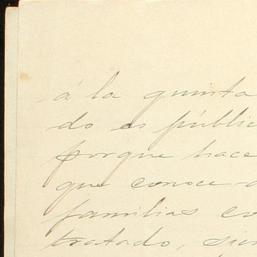 á la quinta
do es públic
porque hace
que conoce a
familias co
tratado, sien